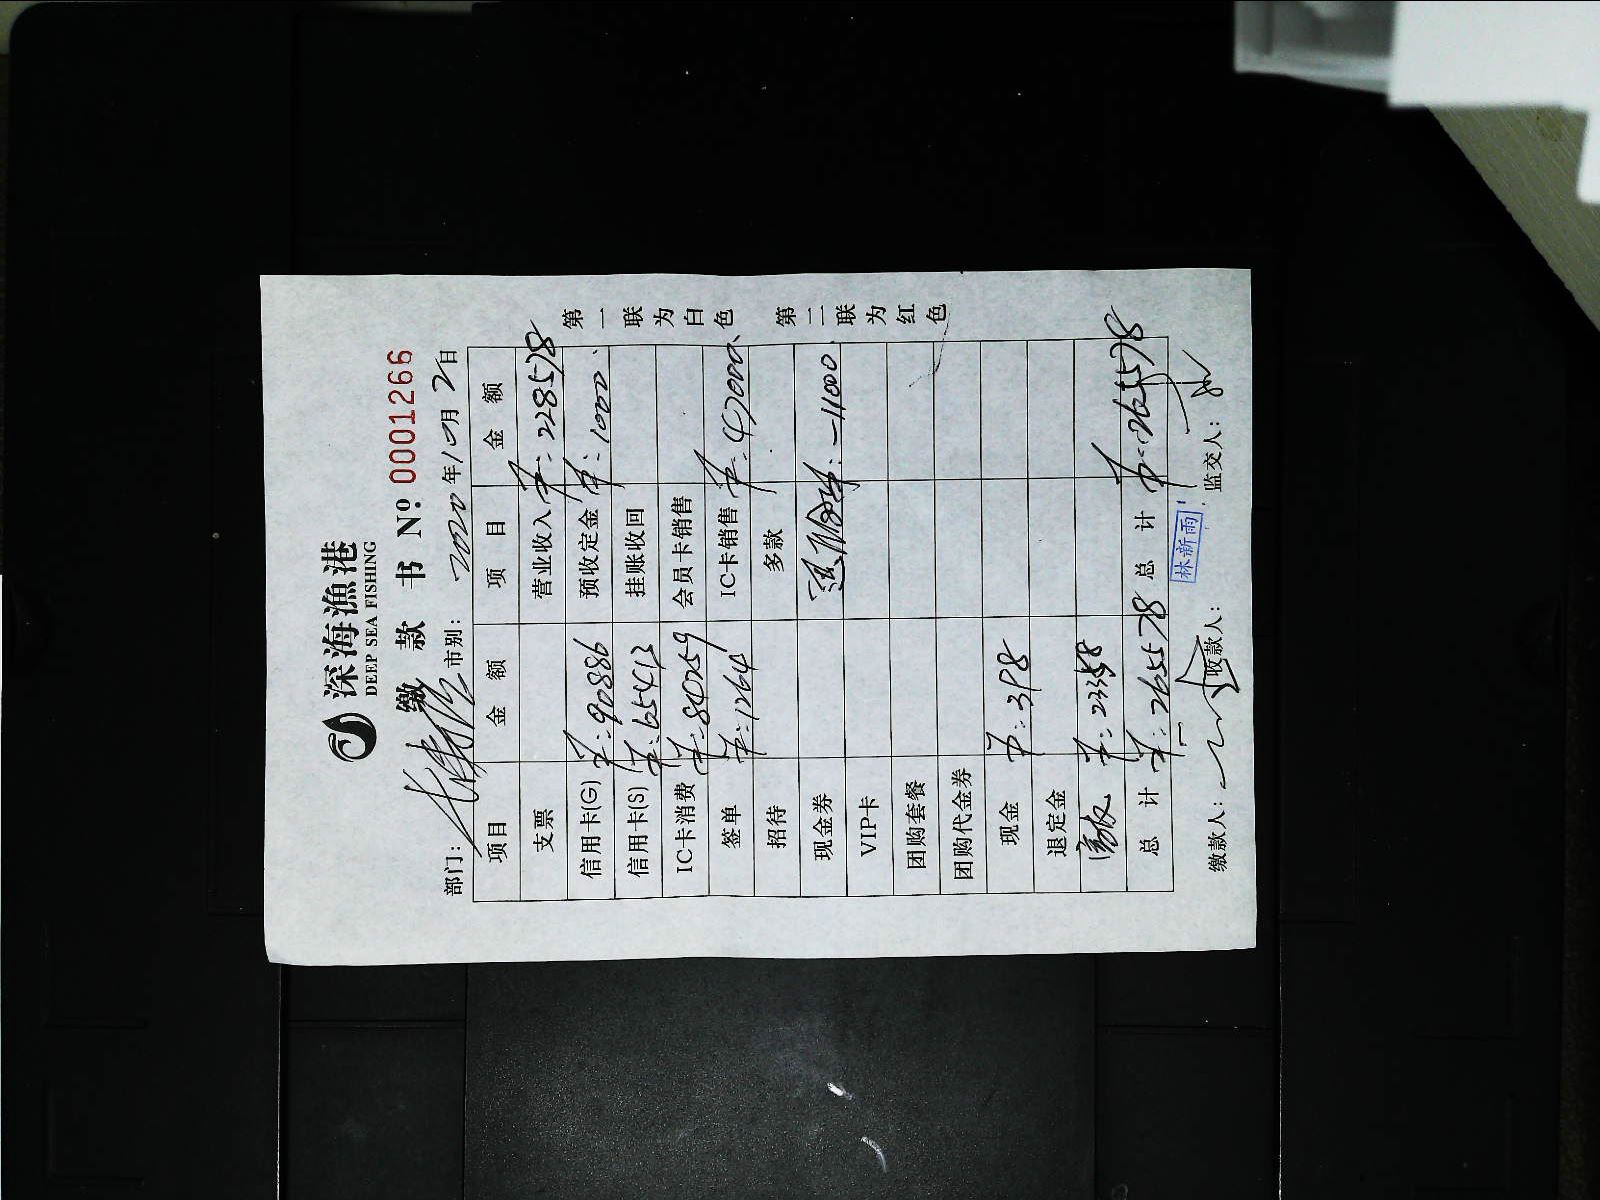 深海漁港
DEEP SEA FISHING
缴款书 Nº 0001266
部门: 市别: 2020年10月2日
项目 金额 项目 金额
支票 营业收入 ¥:228578
信用卡(G) ¥:90886 预收定金 ¥:1000
信用卡(S) ¥:65413 挂账收回
IC卡消费 ¥:84059 会员卡销售
签单 ¥:1264 IC卡销售 ¥:47000
招待 多款
现金券 :-11000
VIP卡
团购套餐
团购代金券
现金 ¥:398
退定金
¥:23558
总计 ¥:265578 总计 ¥:265578
缴款人: 收款人: 林新雨 监交人:
第一联为白色 第二联为红色